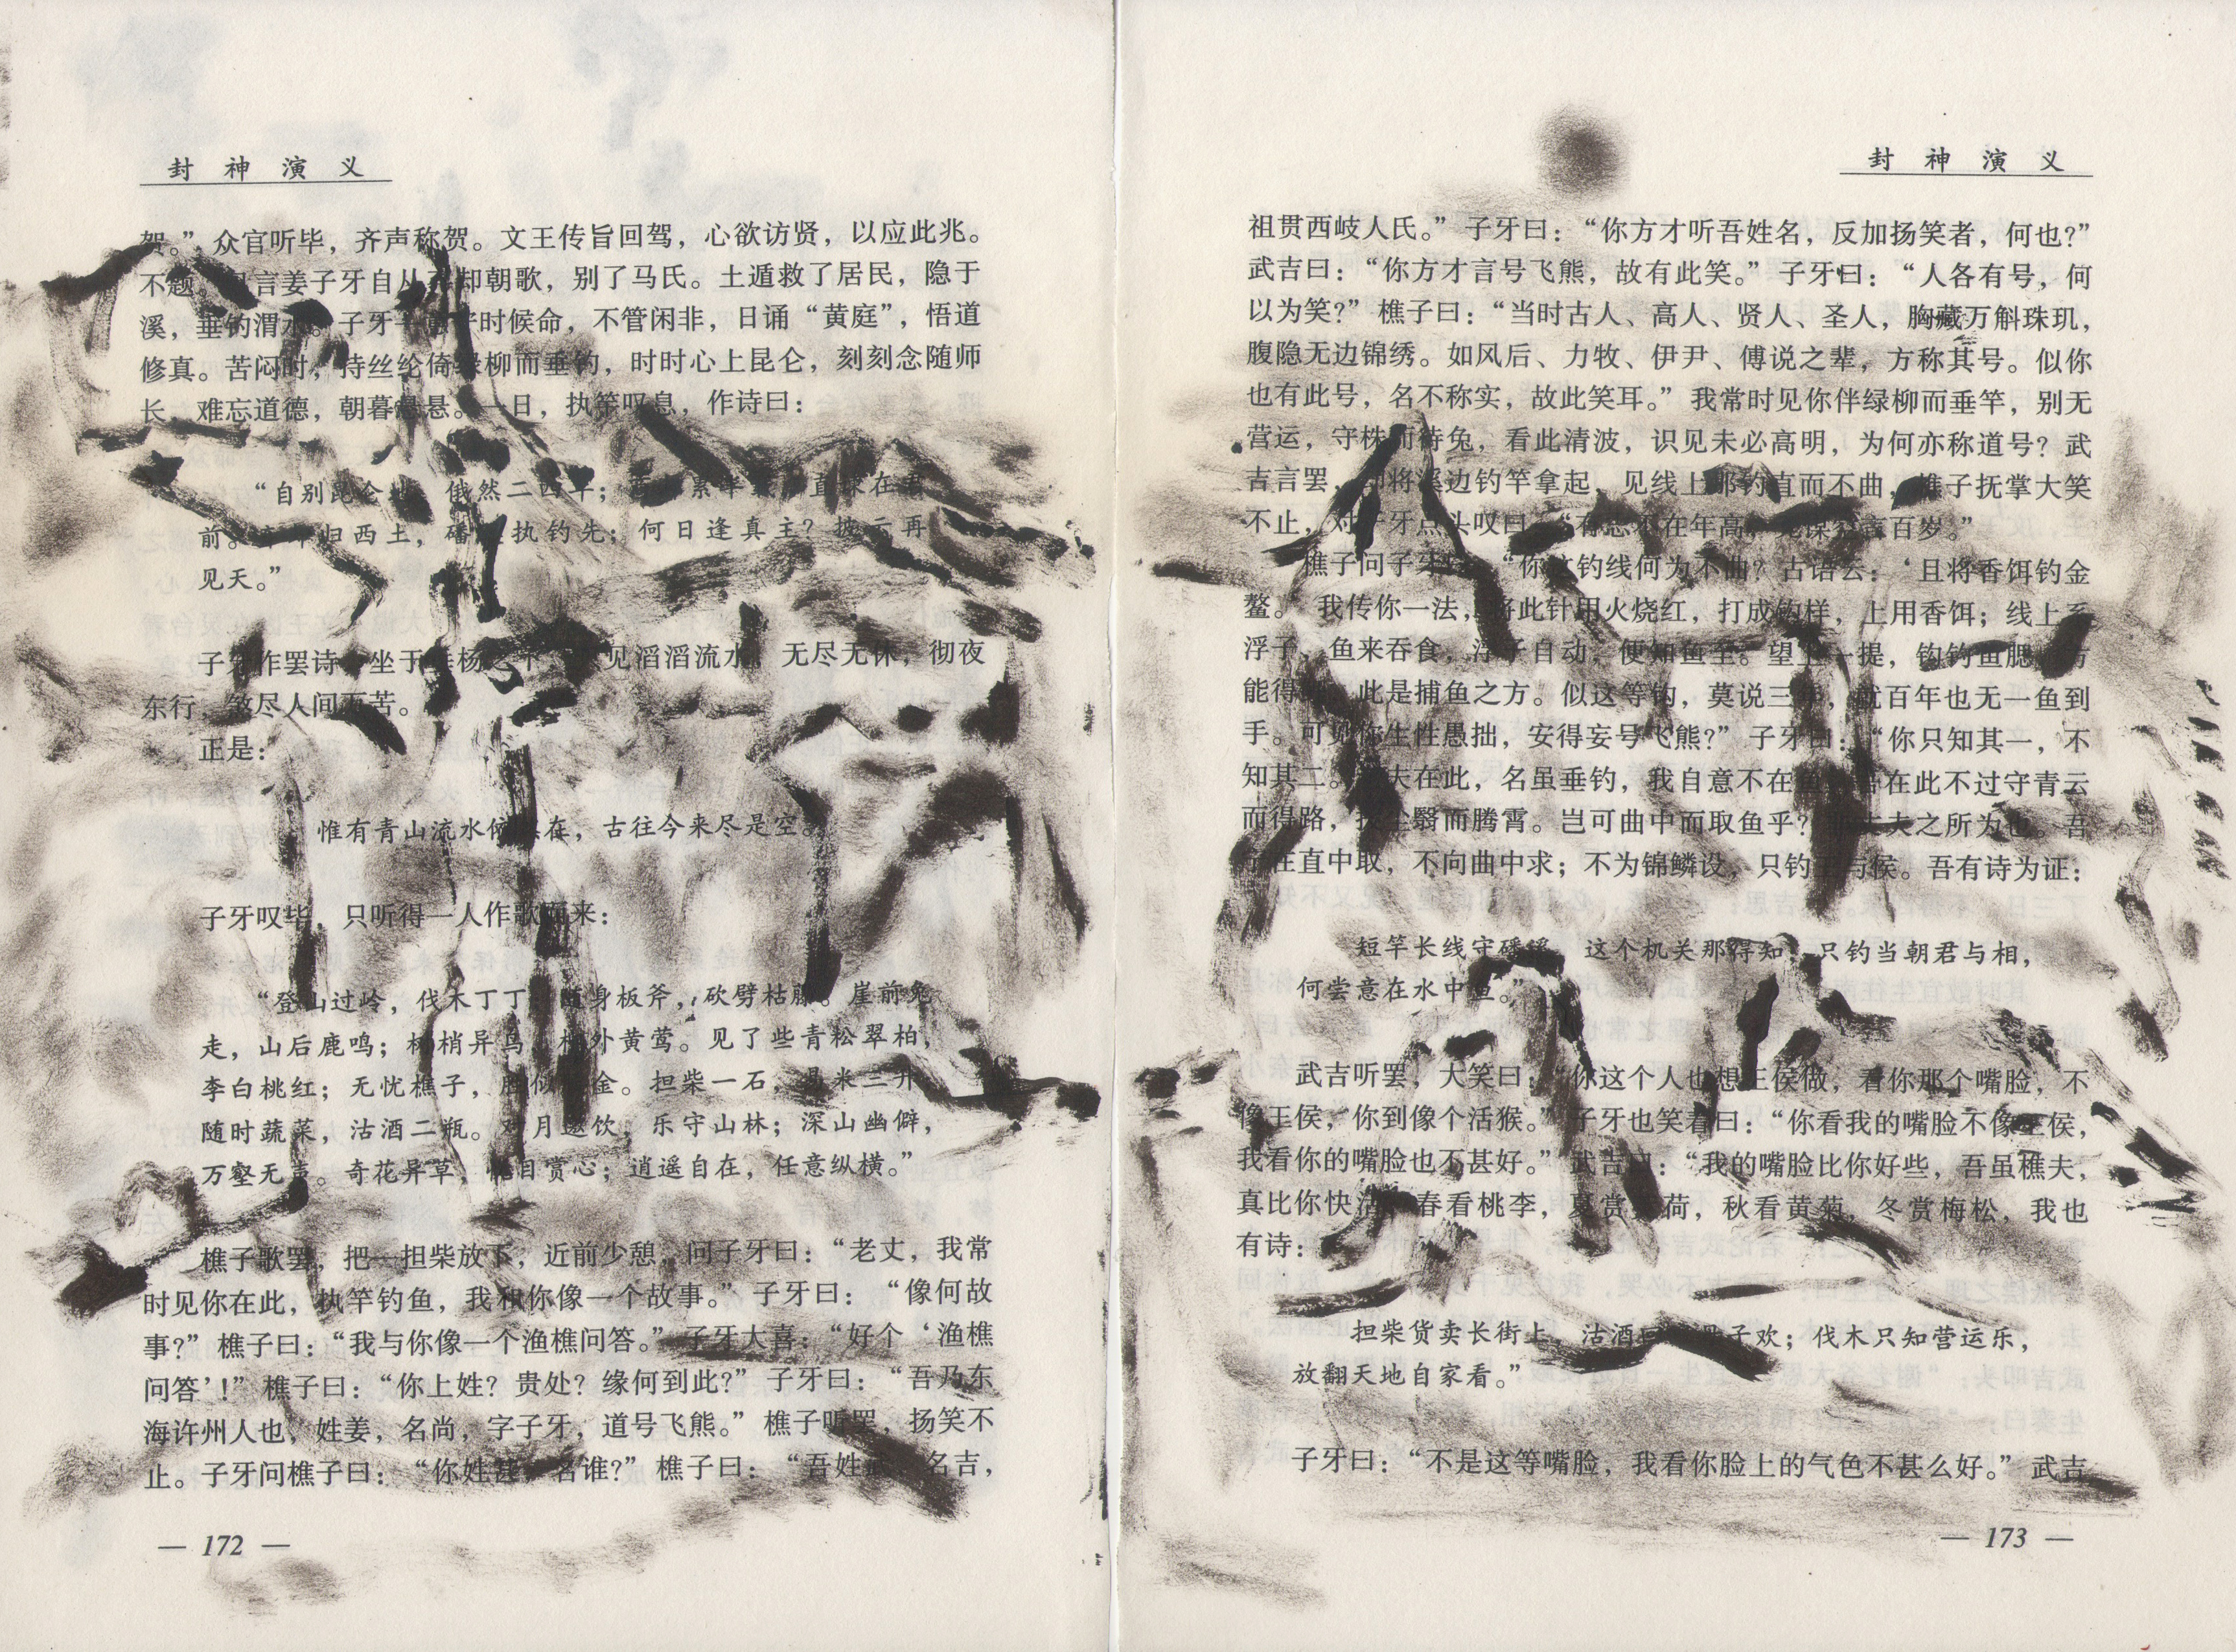 封神演义
贺。”众官听毕，齐声称贺。文王传旨回驾，心欲访贤，以应此兆。
不题。言姜子牙自从却朝歌，别了马氏。土遁救了居民，隐于
溪，垂钓渭水。子牙一时候命，不管闲非，日诵“黄庭”，悟道
修真。苦闷时，持丝纶倚绿柳而垂钓，时时心上昆仑，刻刻念随师
长，难忘道德，朝暮悬悬。一日，执竿叹息，作诗曰：
“自别昆仑俄然二四年；累年直在君
前。归西土，磻执钓先；何日逢真主？披云再
见天。”
子牙作罢诗坐于杨之下见滔滔流水，无尽无休，彻夜
东行，熬尽人间苦。
正是：
惟有青山流水依在，古往今来尽是空。
子牙叹毕，只听得一人作歌而来：
“登山过岭，伐木丁丁；随身板斧，砍劈枯藤。崖前兔
走，山后鹿鸣；树梢异鸟，柳外黄莺。见了些青松翠柏，
李白桃红；无忧樵子，胜似金。担柴一石，易米三升；
随时蔬菜，沽酒二瓶。对月邀饮，乐守山林；深山幽僻，
万壑无声。奇花异草，悦目赏心；逍遥自在，任意纵横。”
樵子歌罢，把一担柴放下，近前少憩，问子牙曰：“老丈，我常
时见你在此，执竿钓鱼，我和你像一个故事。”子牙曰：“像何故
事？”樵子曰：“我与你像一个渔樵问答。”子牙大喜：“好个‘渔樵
问答’！”樵子曰：“你上姓？贵处？缘何到此？”子牙曰：“吾乃东
海许州人也，姓姜，名尚，字子牙，道号飞熊。”樵子听罢，扬笑不
止。子牙问樵子曰：“你姓甚名谁？”樵子曰：“吾姓武名吉，
— 172 —
封神演义
祖贯西岐人氏。”子牙曰：“你方才听吾姓名，反加扬笑者，何也？”
武吉曰：“你方才言号飞熊，故有此笑。”子牙曰：“人各有号，何
以为笑？”樵子曰：“当时古人、高人、贤人、圣人，胸藏万斛珠玑，
腹隐无边锦绣。如风后、力牧、伊尹、傅说之辈，方称其号。似你
也有此号，名不称实，故此笑耳。”我常时见你伴绿柳而垂竿，别无
营运，守株而待兔，看此清波，识见未必高明，为何亦称道号？武
吉言罢，却将溪边钓竿拿起，见线上那钓直而不曲，樵子抚掌大笑
不止，对子牙点头叹曰：“有志不在年高，无谋空言百岁。”
樵子问子牙曰：“你这钓线何为不曲？古语云：‘且将香饵钓金
鳌。’我传你一法，将此针用火烧红，打成钩样，上用香饵；线上系
浮子，鱼来吞食，浮子自动，便知鱼至。望上一提，钩钓鱼腮，方
能得此是捕鱼之方。似这等钩，莫说三年，就百年也无一鱼到
手。可见你生性愚拙，安得妄号飞熊？”子牙曰：“你只知其一，不
知其二。老夫在此，名虽垂钓，我自意不在鱼，吾在此不过守青云
而得路，拨尘翳而腾霄。岂可曲中而取鱼乎？非丈夫之所为也。吾
在直中取，不向曲中求；不为锦鳞设，只钓王与侯。吾有诗为证：
短竿长线守磻溪，这个机关那得知；只钓当朝君与相，
何尝意在水中鱼。”
武吉听罢，大笑曰：“你这个人也想王侯做，看你那个嘴脸，不
像王侯，你到像个活猴。”子牙也笑着曰：“你看我的嘴脸不像王侯，
我看你的嘴脸也不甚好。”武吉曰：“我的嘴脸比你好些，吾虽樵夫，
真比你快活。春看桃李，夏赏荷，秋看黄菊，冬赏梅松，我也
有诗：
担柴货卖长街上，沽酒子欢；伐木只知营运乐，
放翻天地自家看。”
子牙曰：“不是这等嘴脸，我看你脸上的气色不甚么好。”武吉
— 173 —